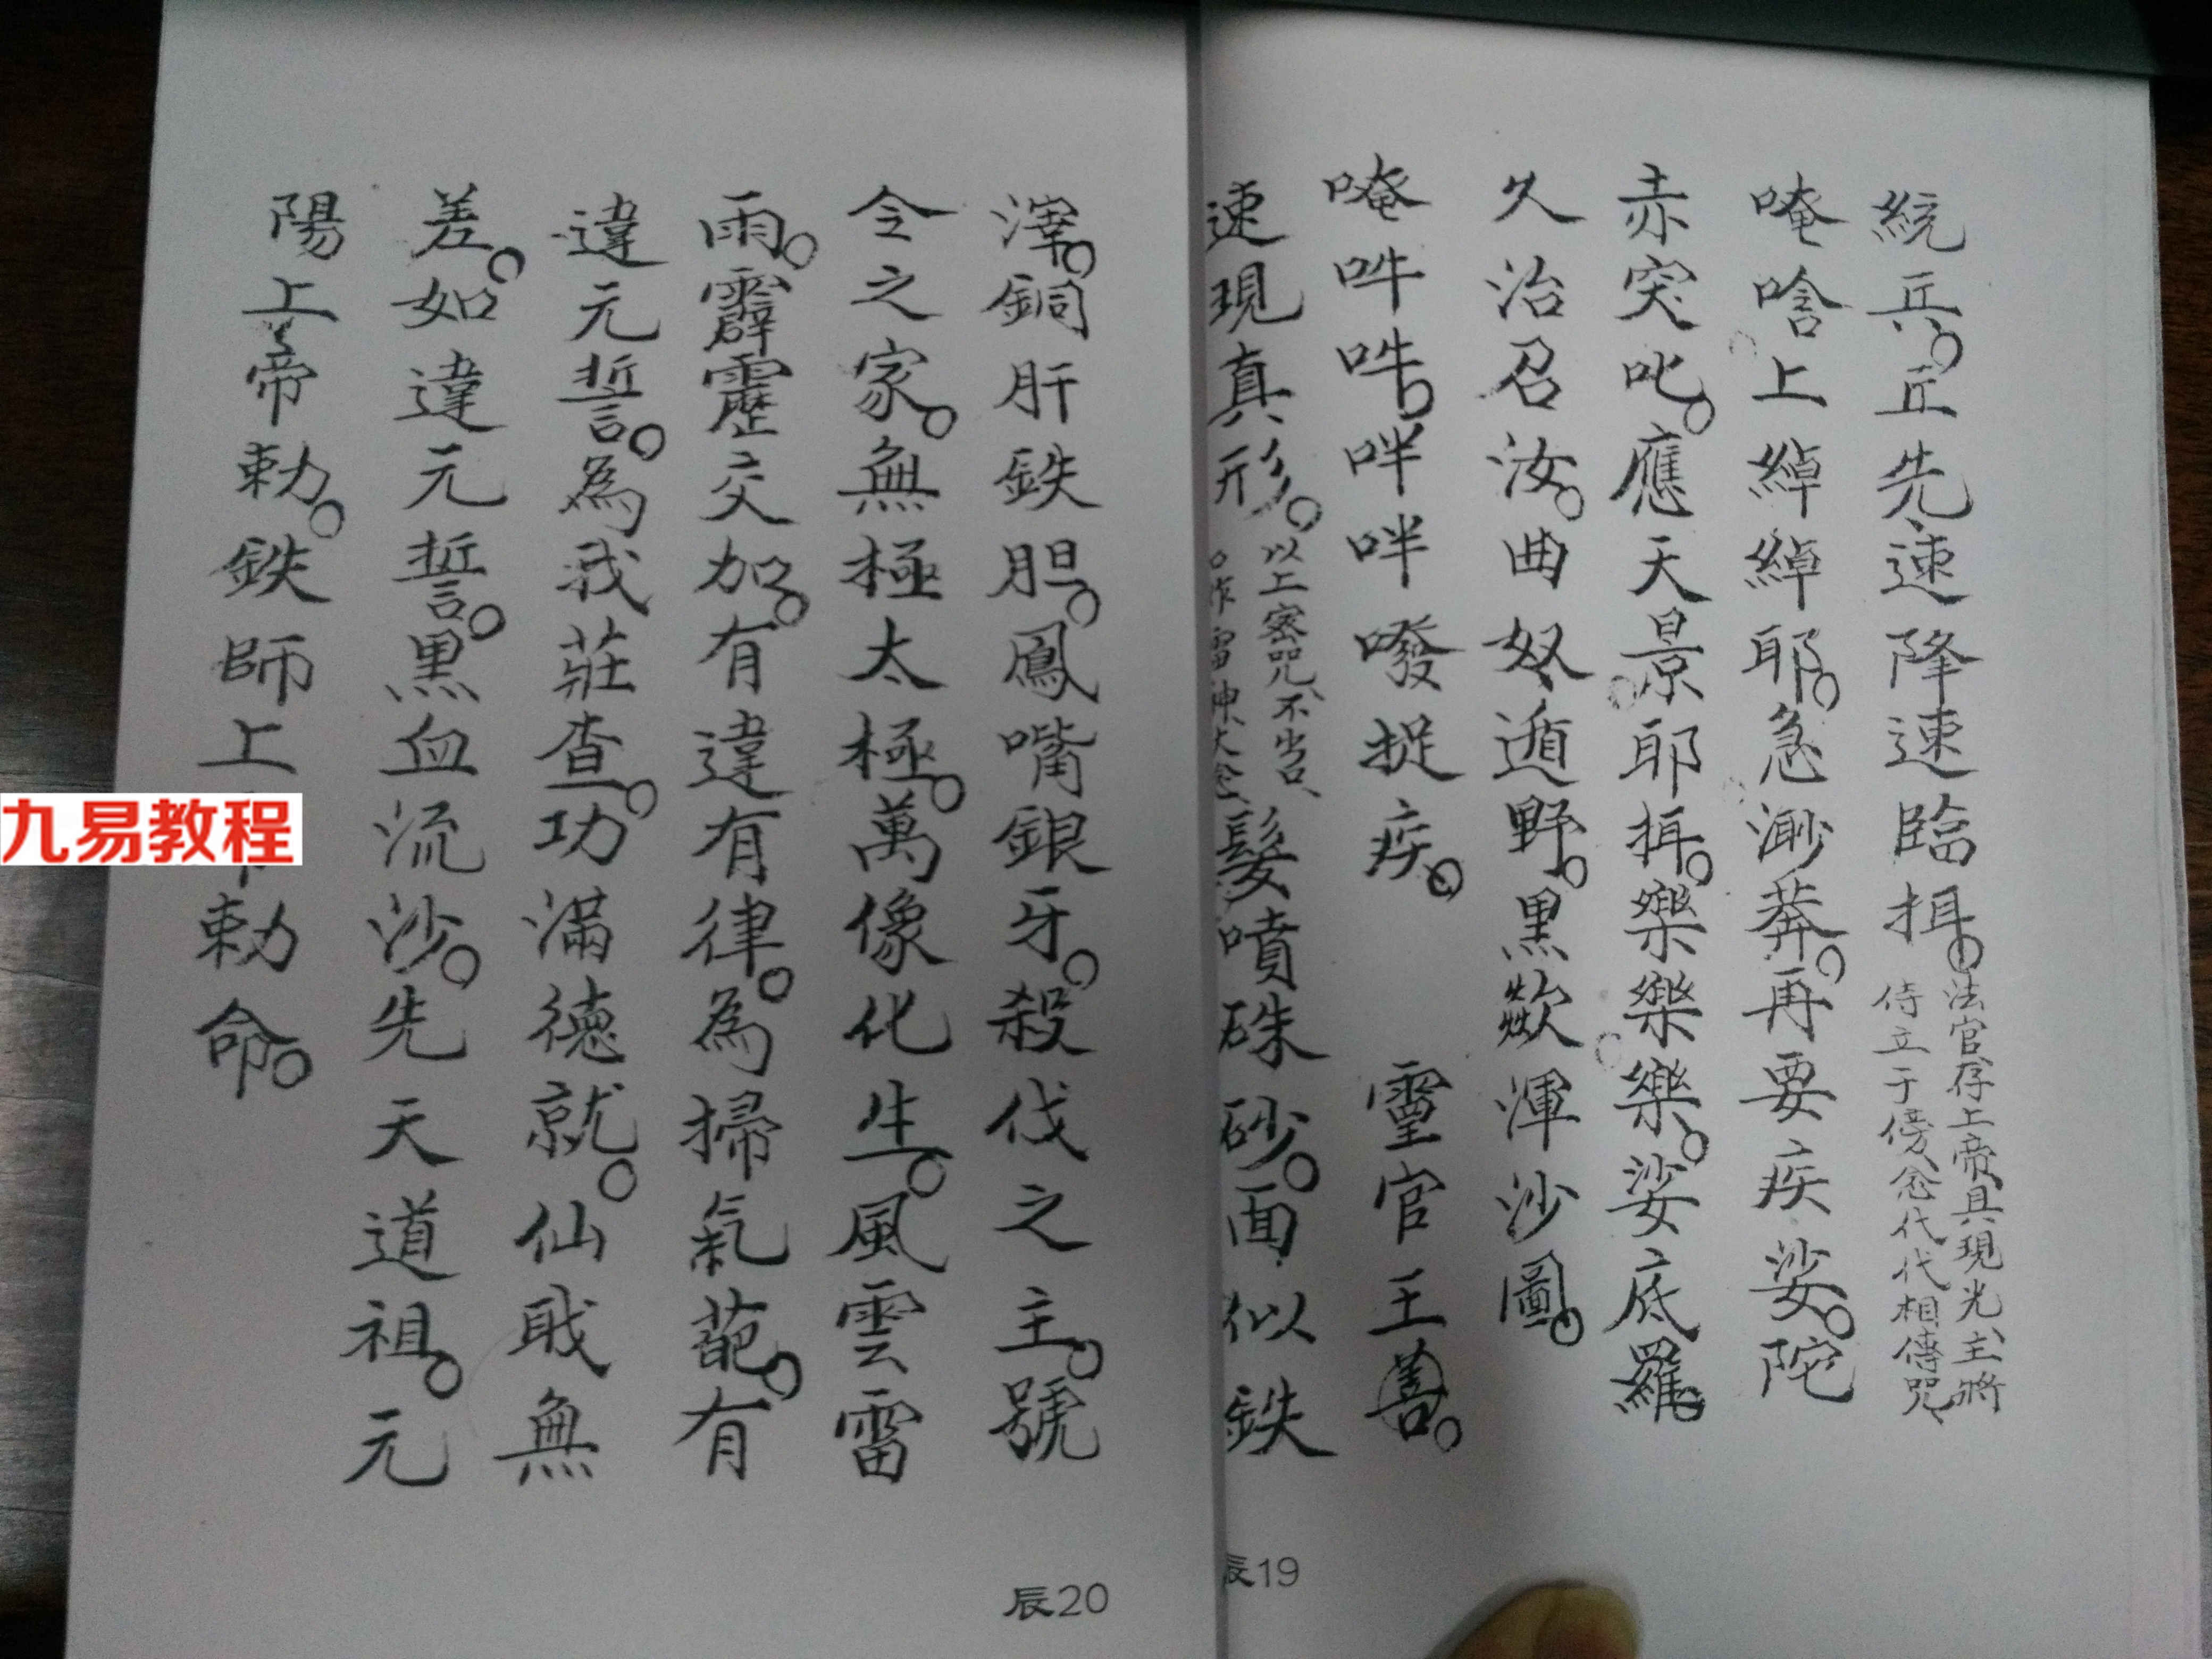 統兵。丘先速降速臨揖。法官存上帝真現光、主將
侍立于傍、念代代相傳咒、
唵唅上綽綽耶。急渺莽。再要疾娑。陀
赤突叱。應天景耶揖。樂樂樂。娑底羅。
久治召汝。曲奴遁野。黑歘渾沙圖。
唵吽吽。吽吽發捉疾。 靈官王善。
速現真形。以上密咒、不出口、
口作雷神大念、髮噴硃砂。面似鉄
滓。銅肝鉄胆。鳳嘴銀牙。殺伐之主。號
令之家。無極太極。萬像化生。風雲雷
雨。霹靂交加。有違有律。為掃氣葩。有
違元誓。為我莊查。功滿德就。仙戢無
差。如違元誓。黑血流沙。先天道祖。元
陽上帝勅。鉄師上帝勅命。
辰19
辰20
九易教程